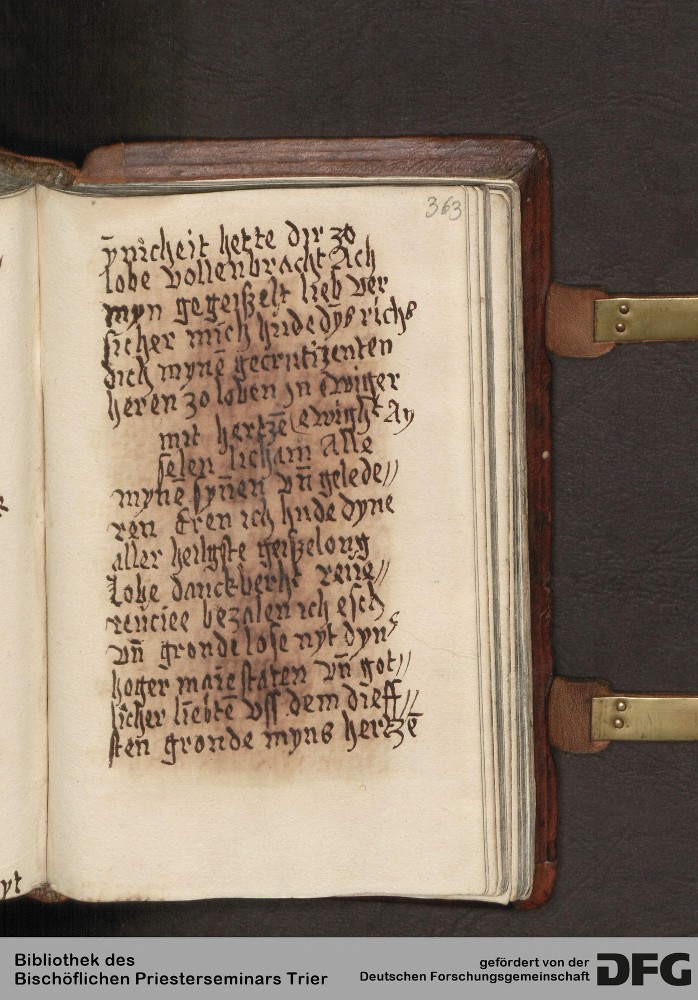 363
ỹnicheit hette dir zo
lobe vollenbracht Ach
myn gegeißelt lieb ver
sicher mich hude dys richs
dich mynē gecrutizenten
heren zo loben jn ewiger
mit hertzē ewight Ay
selen licham Alle
mynē synnen vn̄ gelede//
ren Eren ich hude dyne
aller heilgste geißelong
Lobe danckberht reue//
renciee bezalen ich esch
vn̄ grondelose nyt dyn
hoger maiestaten vn̄ got//
licher liebtē vss dem dieff//
sten gronde myns hertzē
yt
Bibliothek des
Bischöflichen Priesterseminars Trier
gefördert von der
Deutschen Forschungsgemeinschaft
DFG